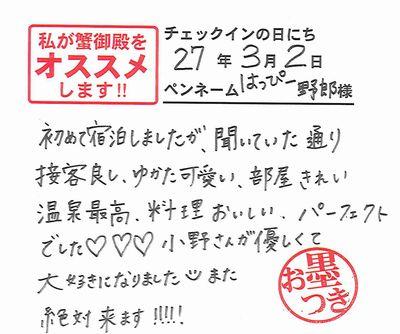 私が蟹御殿を
オススメ
します!!
チェックインの日にち
27年3月2日
ペンネームはっぴー野郎様
初めて宿泊しましたが、聞いていた通り
接客良し、ゆかた可愛い、部屋きれい
温泉最高、料理おいしい、パーフェクト
でした♡♡♡小野さんが優しくて
大好きになりました また
絶対来ます!!!!!
お墨つき